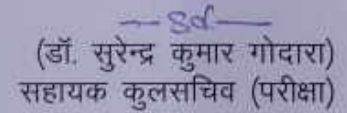 —Sd—
(डॉ. सुरेन्द्र कुमार गोदारा)
सहायक कुलसचिव (परीक्षा)